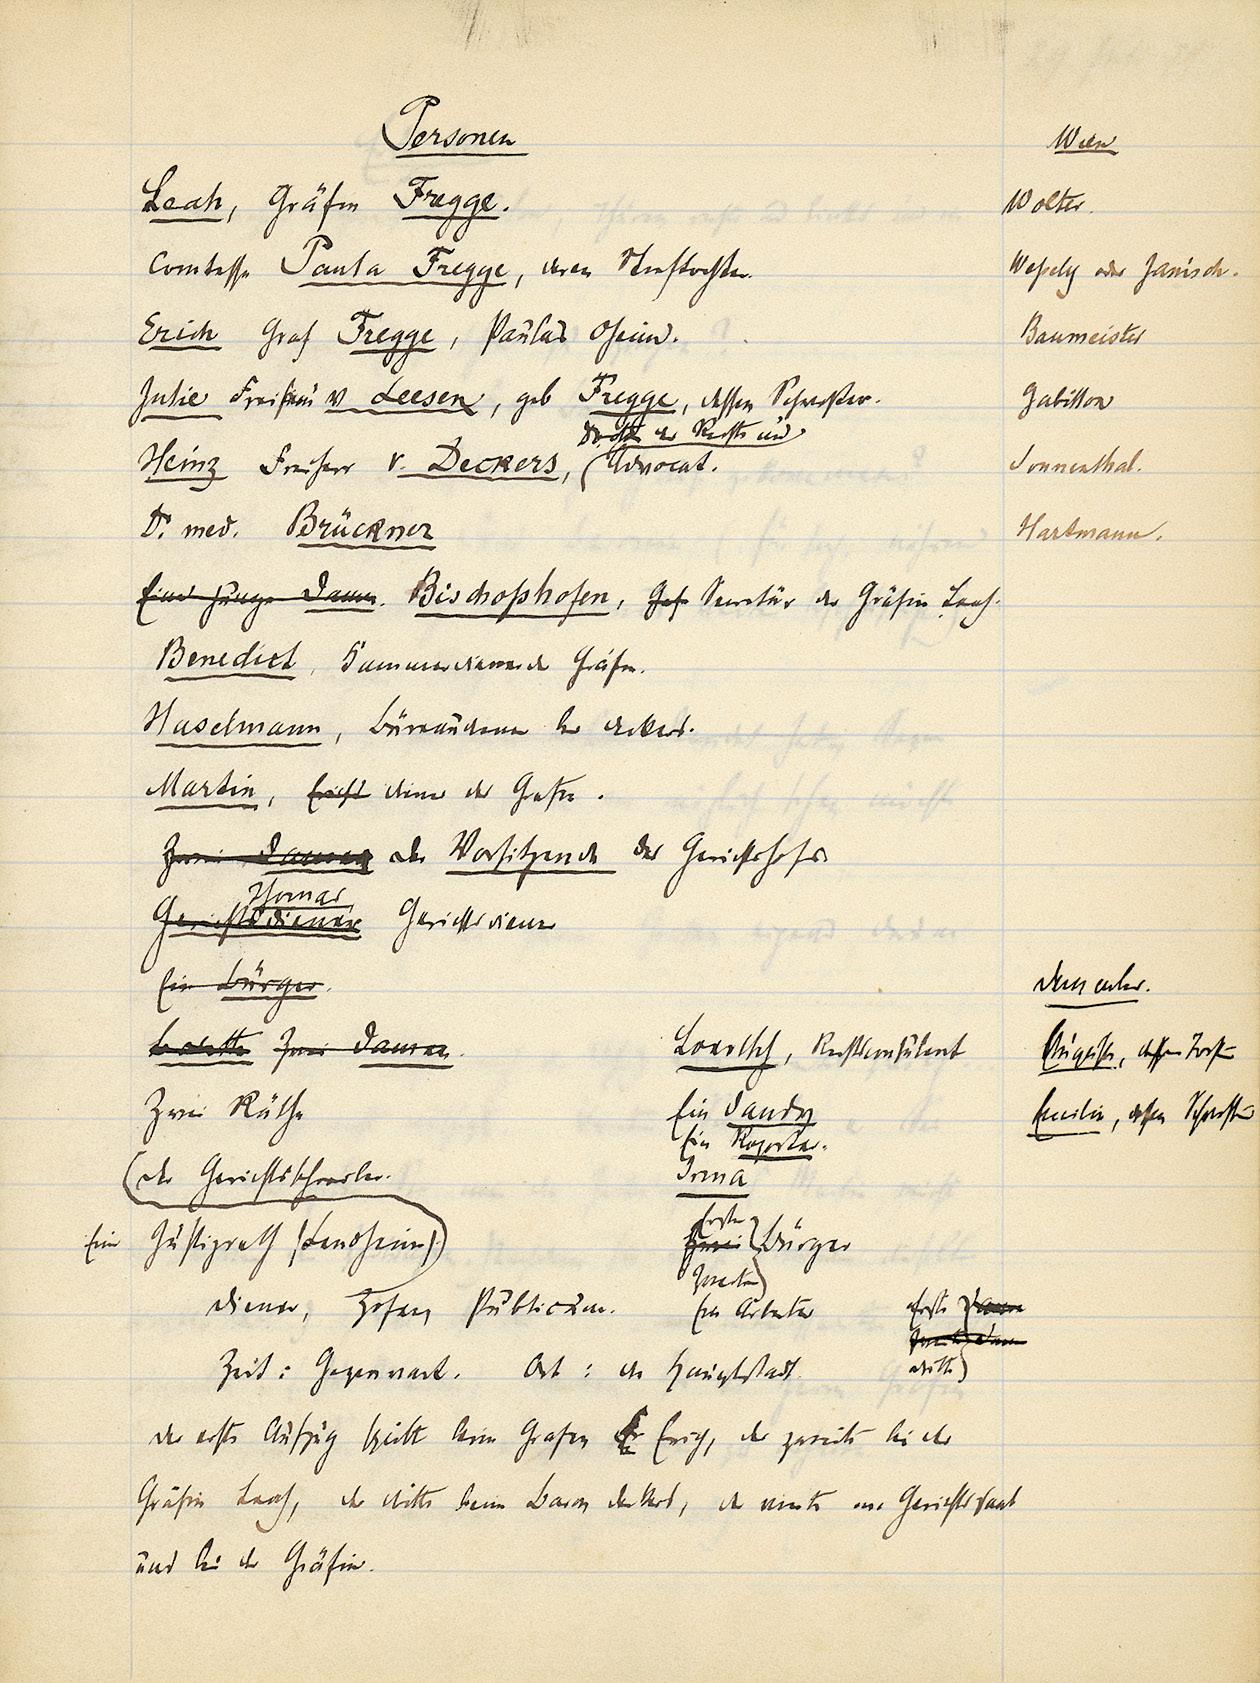 Personen
Wien
Leah, Gräfin Fregge.
Wolter.
Comtesse Paula Fregge, deren Stieftochter.
Wessely oder Janisch.
Erich Graf Fregge, Paulas Oheim.
Baumeister
Julie Freifrau v Leesen, geb Fregge, dessen Schwester.
Gabillon
Doctor der Rechte und
Heinz Freiherr v. Deckers, (Advocat.
Sonnenthal.
Dr. med. Brückner
Hartmann.
Eine junge Dame. Bischofshofen, Secretär der Gräfin Leah.
Benedict, Kammerdiener der Gräfin.
Haselmann, Büreaudiener bei Deckers.
Martin, Diener der Grafen.
Zwei Damen Der Vorsitzende des Gerichtshofes
Thomas,
Gerichtsdiener Gerichtsdiener
Ein Bürger.
Zwei Damen.
Rechtsconsulent
Auguste, dessen
Zwei Räthe
Ein Dandy
Cäcilie, dessen Schwester
Ein Reporter.
(Der Gerichtsschreiber.
Irma
Erster
Ein Justizrath (Landheim)
Zwei Bürger
Zweiter
Diener, Zofen, Publicum.
Ein Arbeiter
Erste Dame
Zweite Dame
dritte
Zeit: Gegenwart. Ort: die Hauptstadt.
Der erste Aufzug spielt beim Grafen Erich, der zweite bei der
Gräfin Leah, der dritte beim Baron Deckers, der vierte im Gerichtssaal
und bei der Gräfin.